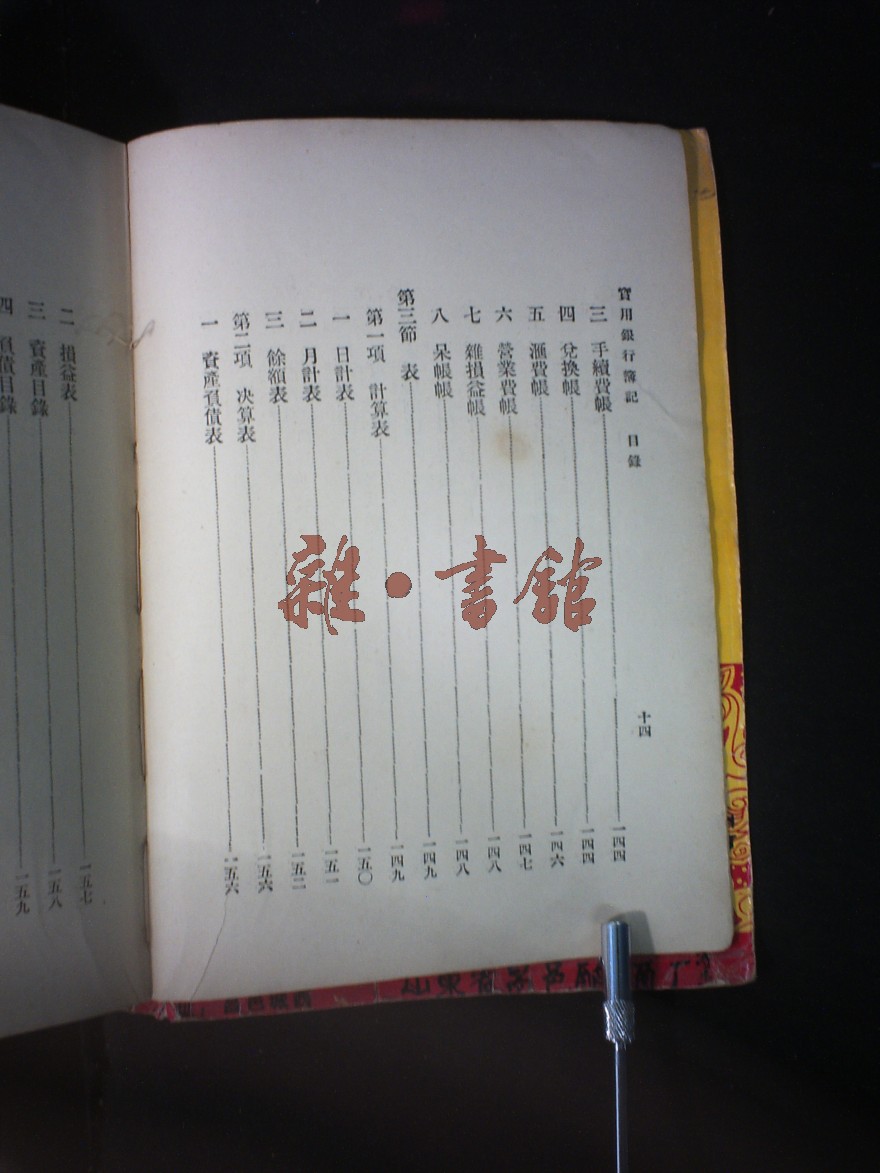 實用銀行簿記 目錄 十四
三 手續費帳 一四四
四 兌換帳 一四四
五 滙費帳 一四六
六 營業費帳 一四七
七 雜損益帳 一四八
八 呆帳帳 一四八
第三節 表 一四九
第一項 計算表 一四九
一 日計表 一五〇
二 月計表 一五一
三 餘額表 一五二
第二項 決算表 一五六
一 資產負債表 一五六
二 損益表 一五七
三 資產目錄 一五八
四 負債目錄 一五九
雜·書館